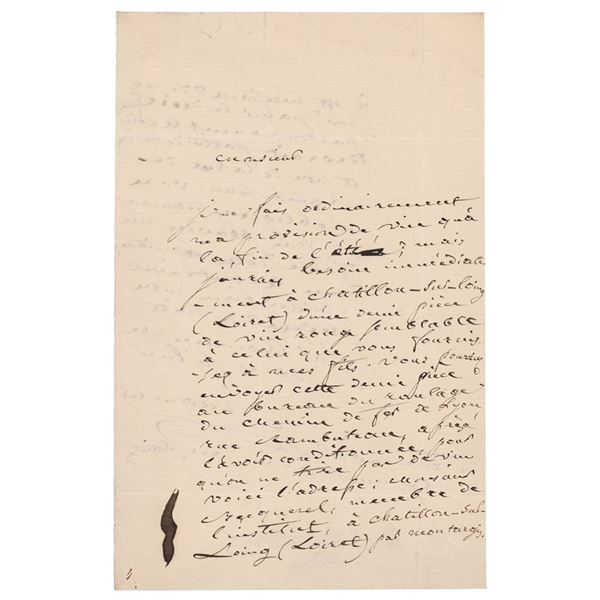 Monsieur
je ne fais ordinairement
ma provision de vin qu'à
la fin de l'été ; mais
j'aurais besoin immédiate
-ment à chatillon-sur-loing
(Loiret) d'une demi pièce
de vin rouge semblable
à celui que vous fournis
-sez à mes fils. vous pourrez
envoyer cette demi pièce
au bureau du roulage
du chemin de fer de Lyon
rue Rambuteau, après
l'avoir conditionnée, pour
qu'on ne tire pas de vin
voici l'adresse; Monsieur
Becquerel, membre de
l'institut, à chatillon-sur-
Loing (Loiret) par montargis.